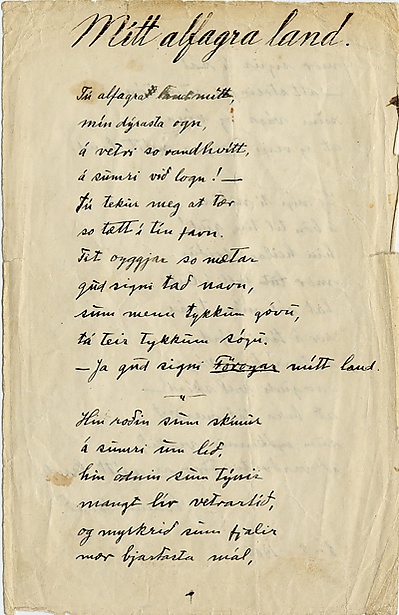 Mítt alfagra land.
Tú alfagra land mítt,
mín dýrasta ogn,
á vetri so randhvítt,
á sumri við logn! —
tú tekur meg at tær
so tætt í tín favn.
Tit oyggjar so mætar
gud signi tað navn,
sum menn tykkum góvu,
tá teir tykkum sógu.
— Ja gud signi Föroyar mítt land.
Hin roðin sum skínur
á sumri um líð,
hin ódnin sum týnir
mangt lív vetrartíð,
og myrkrið sum fjalir
mær bjartasta mál,